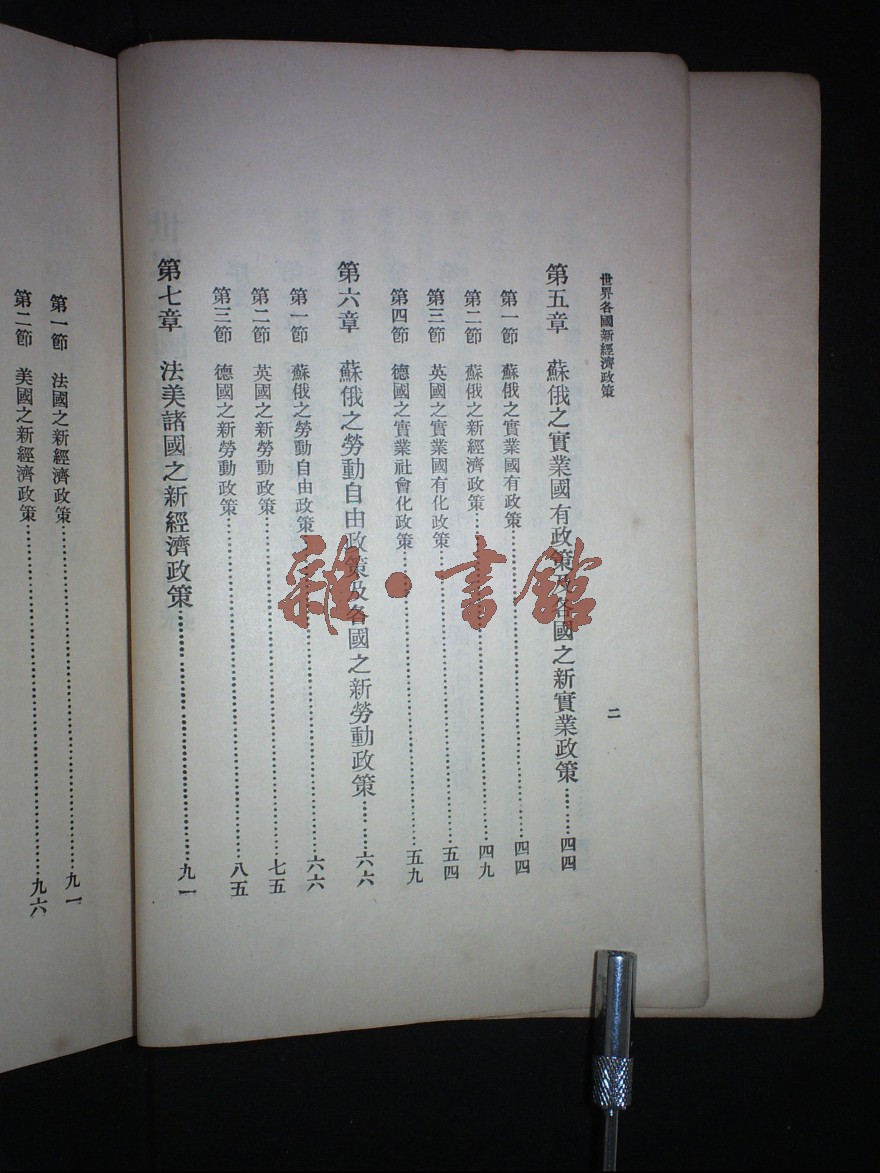 世界各國新經濟政策
二
第五章 蘇俄之實業國有政策及各國之新實業政策……四四
第一節 蘇俄之實業國有政策……四四
第二節 蘇俄之新經濟政策……四九
第三節 英國之實業國有化政策……五四
第四節 德國之實業社會化政策……五九
第六章 蘇俄之勞動自由政策及各國之新勞動政策……六六
第一節 蘇俄之勞動自由政策……六六
第二節 英國之新勞動政策……七五
第三節 德國之新勞動政策……八五
第七章 法美諸國之新經濟政策……九一
第一節 法國之新經濟政策……九一
第二節 美國之新經濟政策……九六
雜·書館